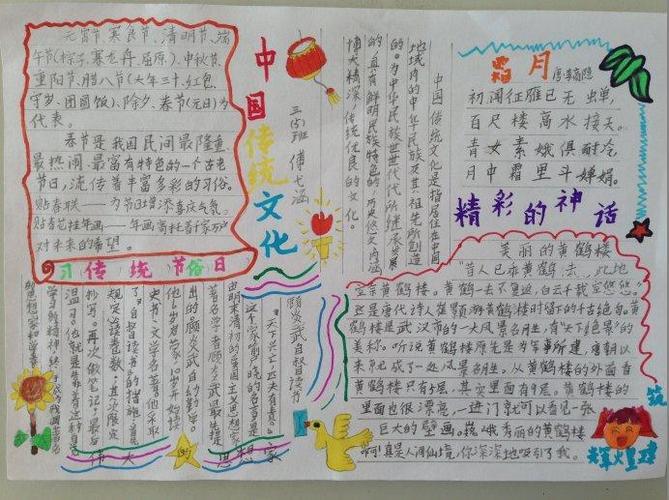 元宵节、寒食节、清明节、端
午节(粽子、赛龙舟、屈原)、中秋节、
重阳节、腊八节(大年三十、红包、
守岁、团圆饭)、除夕、春节(元日)为
代表。
春节是我国民间最隆重、
最热闹、最富有特色的一个古老
节日,流传着丰富多彩的习俗。
贴春联——为节日增添喜庆气氛。
对未来的希望。
习传统节俗日
中国传统文化
三(6)班
中国传统文化是指居住在中国
地域内的中华民族及其祖先所创造
的。为中华民族世世代代所继承发展
的,具有鲜明民族特色的,历史悠久,内涵
博大精深,传统优良的文化。
霜月
唐李商隐
初闻征雁已无蝉,
百尺楼高水接天。
青女素娥俱耐冷,
月中霜里斗婵娟。
精彩的神话
美丽的黄鹤楼
"昔人已乘黄鹤去,此地
空余黄鹤楼。黄鹤一去不复返,白云千载空悠悠。"
这是唐代诗人崔颢游黄鹤楼时留下的千古绝句。黄
鹤楼是武汉市的一大风景名胜,有"天下绝景"的
美称。听说黄鹤楼原先是为军事所建,唐朝以
来就成了一处风景名胜。从黄鹤楼的外面看
黄鹤楼只有5层,其实里面有9层。黄鹤楼的
里面也很漂亮,一进门就可以看见一张
巨大的壁画。巍峨秀丽的黄鹤楼
啊!真是人间仙境,你深深地吸引了我。
顾炎武自督读书
"天下兴亡,匹夫有责。"
这个家喻户晓的名言是
由明末清初的爱国主义思想家、
著名学者顾炎武最先提
出的。顾炎武自幼勤学。
他6岁启蒙,10岁开始读
史书、文学名著。
伟大的思想家
辉煌建筑